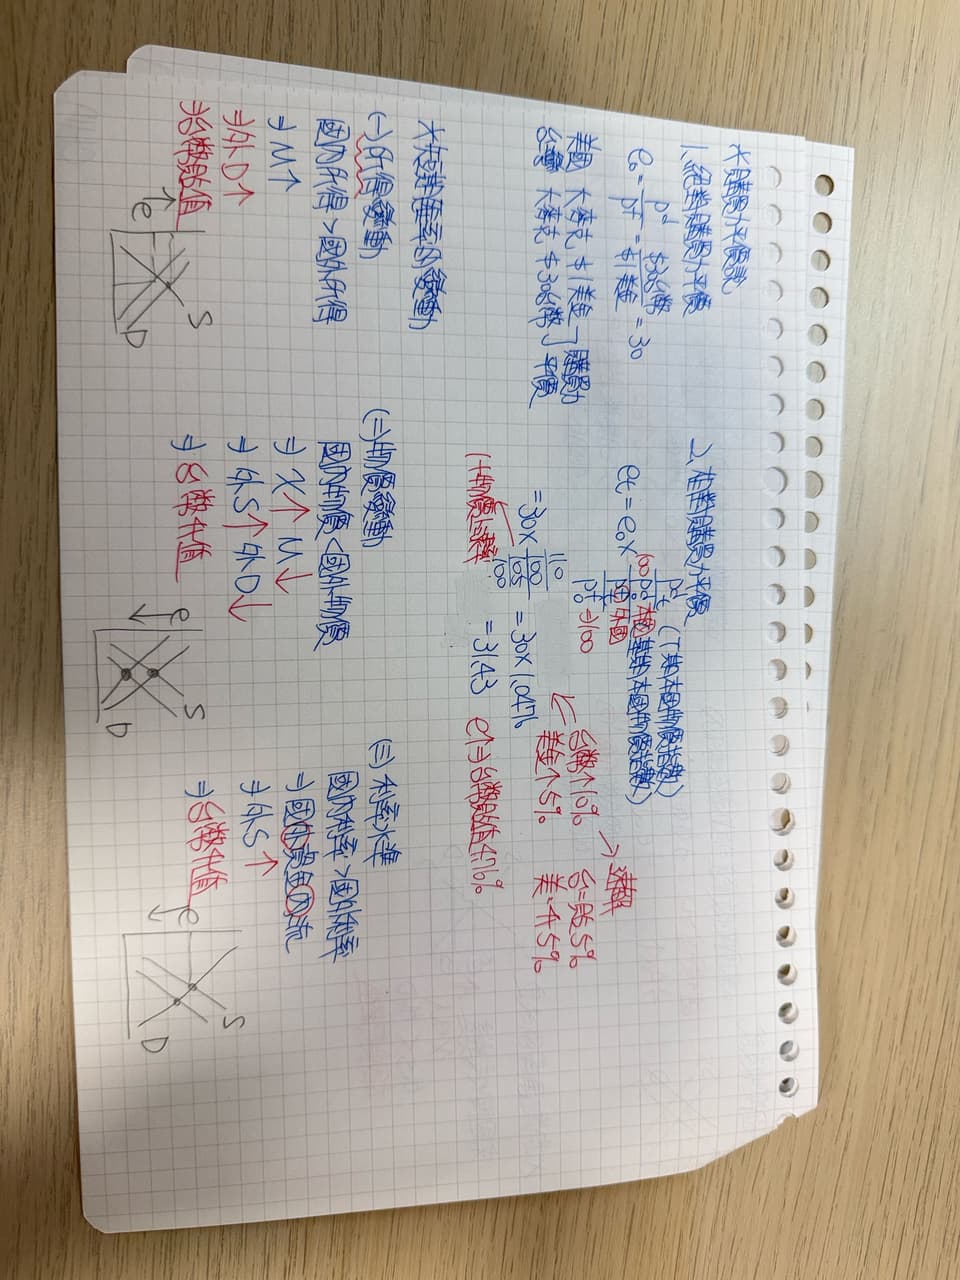 *購買力平價說
1.絕對購買力平價
e₀ = Pd/Pf = $30台幣/$1美金 = 30
美國 大麥克 $1美金 ㄱ購買力
台灣 大麥克 $30台幣 」平價
2.相對購買力平價
et = e₀ × (Pdt/Pd0)/(Pft/Pf0) (T期本國物價指數)
100 本國 基期本國物價指數)
外國
⇒100
= 30 × (110/100)/(105/100) = 30 × 1.0476
1+物價比率 = 31.43 e↑⇒台幣貶值4.76%
台幣↑10%
美金↑5%
→速解
台=貶5%
美=升5%
*造成匯率的變動
(一)所得變動
國內所得 > 國外所得
⇒ M↑
⇒外D↑
⇒台幣貶值
↑e
S
D
(二)物價變動
國內物價 < 國外物價
⇒ X↑ M↓
⇒ 外S↑ 外D↓
⇒ 台幣升值
↓e
S
D
(三)利率水準
國內利率 > 國外利率
⇒ 國外資金內流
⇒ 外S↑
⇒台幣升值
↓e
S
D